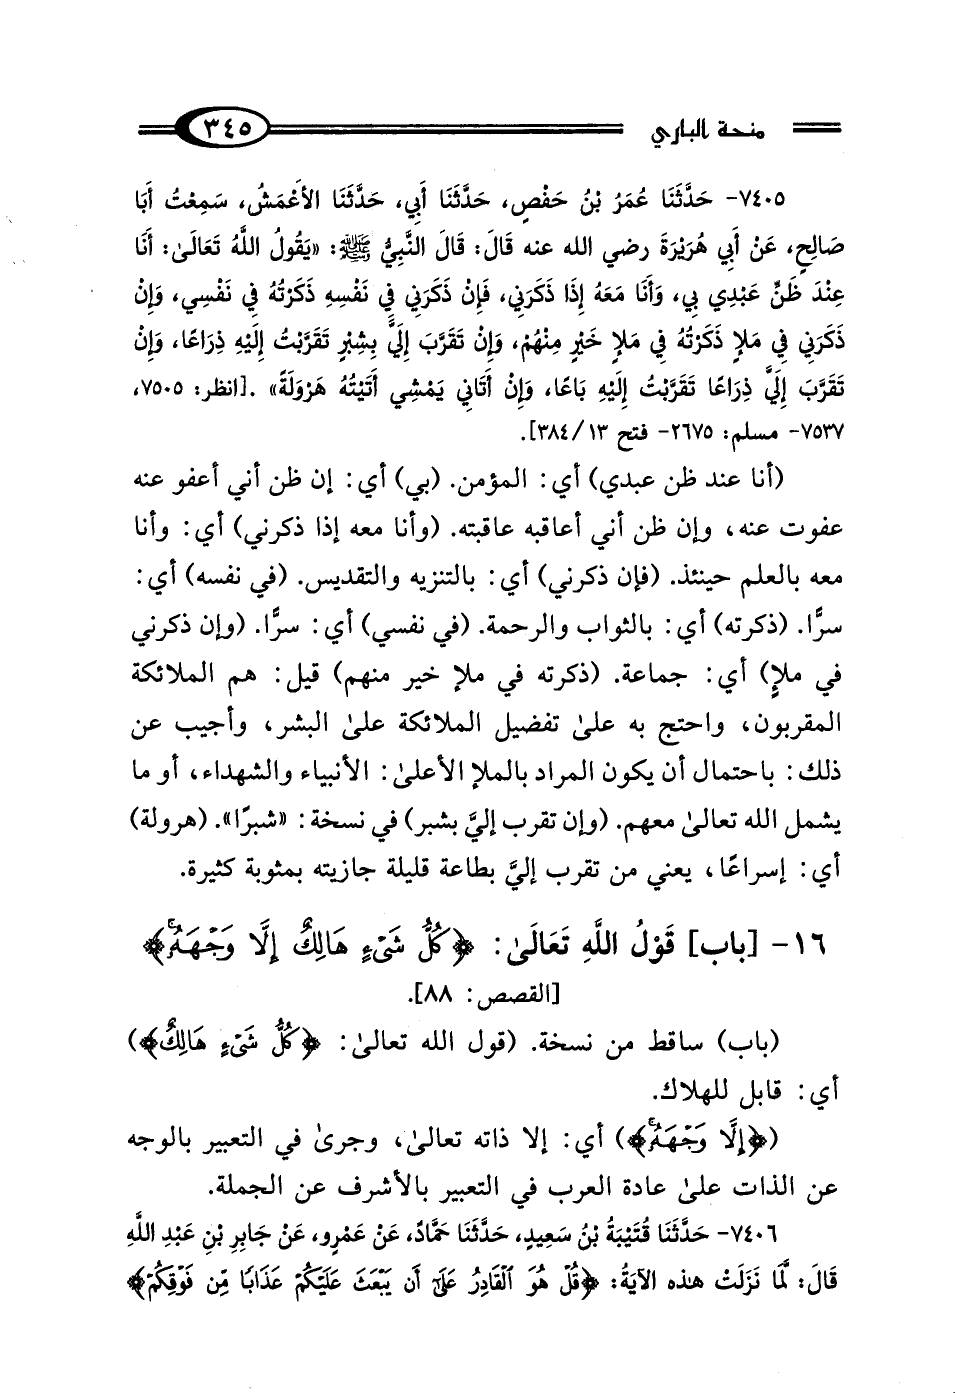 منحة الباري ٣٤٥
٧٤٠٥- حَدَّثَنَا عُمَرُ بْنُ حَفْصٍ، حَدَّثَنَا أَبِي، حَدَّثَنَا الأَعْمَشُ، سَمِعْتُ أَبَا
صَالِحٍ، عَنْ أَبِي هُرَيْرَةَ رضي الله عنه قَالَ: قَالَ النَّبِيُّ ﷺ: «يَقُولُ اللَّهُ تَعَالَىٰ: أَنَا
عِنْدَ ظَنِّ عَبْدِي بِي، وَأَنَا مَعَهُ إِذَا ذَكَرَنِي، فَإِنْ ذَكَرَنِي فِي نَفْسِهِ ذَكَرْتُهُ فِي نَفْسِي، وَإِنْ
ذَكَرَنِي فِي مَلإٍ ذَكَرْتُهُ فِي مَلإٍ خَيْرٍ مِنْهُمْ، وَإِنْ تَقَرَّبَ إِلَيَّ بِشِبْرٍ تَقَرَّبْتُ إِلَيْهِ ذِرَاعًا، وَإِنْ
تَقَرَّبَ إِلَيَّ ذِرَاعًا تَقَرَّبْتُ إِلَيْهِ بَاعًا، وَإِنْ أَتَانِي يَمْشِي أَتَيْتُهُ هَرْوَلَةً» .[انظر: ٧٥٠٥،
٧٥٣٧- مسلم: ٢٦٧٥- فتح ١٣/ ٣٨٤].
(أنا عند ظن عبدي) أي: المؤمن. (بي) أي: إن ظن أني أعفو عنه
عفوت عنه، وإن ظن أني أعاقبه عاقبته. (وأنا معه إذا ذكرني) أي: وأنا
معه بالعلم حينئذ. (فإن ذكرني) أي: بالتنزيه والتقديس. (في نفسه) أي:
سرًّا. (ذكرته) أي: بالثواب والرحمة. (في نفسي) أي: سرًّا. (وإن ذكرني
في ملإ) أي: جماعة. (ذكرته في ملإ خير منهم) قيل: هم الملائكة
المقربون، واحتج به علىٰ تفضيل الملائكة علىٰ البشر، وأجيب عن
ذلك: باحتمال أن يكون المراد بالملإ الأعلىٰ: الأنبياء والشهداء، أو ما
يشمل الله تعالىٰ معهم. (وإن تقرب إليَّ بشبر) في نسخة: «شبرًا». (هرولة)
أي: إسراعًا، يعني من تقرب إليَّ بطاعة قليلة جازيته بمثوبة كثيرة.
١٦- [باب] قَوْلُ اللَّهِ تَعَالَىٰ: ﴿كُلُّ شَىْءٍ هَالِكٌ إِلَّا وَجْهَهُۥۚ﴾
[القصص: ٨٨].
(باب) ساقط من نسخة. (قول الله تعالىٰ: ﴿كُلُّ شَىْءٍ هَالِكٌ﴾)
أي: قابل للهلاك.
(﴿إِلَّا وَجْهَهُۥۚ﴾) أي: إلا ذاته تعالىٰ، وجرىٰ في التعبير بالوجه
عن الذات علىٰ عادة العرب في التعبير بالأشرف عن الجملة.
٧٤٠٦- حَدَّثَنَا قُتَيْبَةُ بْنُ سَعِيدٍ، حَدَّثَنَا حَمَّادٌ، عَنْ عَمْرٍو، عَنْ جَابِرِ بْنِ عَبْدِ اللَّهِ
قَالَ: لَمَّا نَزَلَتْ هٰذِه الآيَةُ: ﴿قُلْ هُوَ ٱلْقَادِرُ عَلَىٰٓ أَن يَبْعَثَ عَلَيْكُمْ عَذَابًا مِّن فَوْقِكُمْ﴾